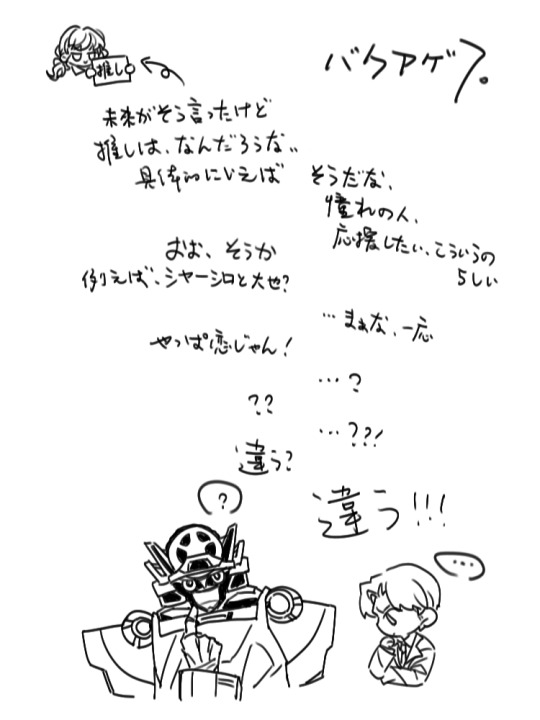 バクアゲ7。
推し
未来がそう言ったけど
推しは、なんだろうな、、
具体的にいえば
そうだな、
憧れの人、
応援したい、こういうの
らしい
おお、そうか
例えば、シャーシロと大也?
…まぁな、一応
やっぱ恋じゃん!
…?
??
…??!
違う?
違う!!!
?
…